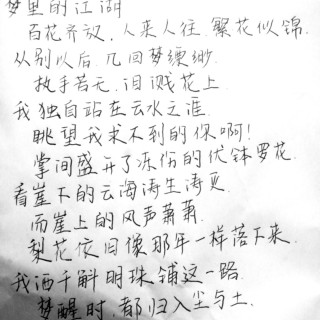 梦里的江湖
百花齐放,人来人往,繁花似锦.
从别以后,几回梦缥缈.
执手若无,泪溅花上.
我独自站在云水之涯.
眺望我求不到的你啊!
掌间盛开了冻伤的优钵罗花.
看崖下的云海涛生涛灭.
而崖上的风声萧萧.
梨花依旧像那年一样落下来.
我洒千斛明珠铺这一路.
梦醒时,都归入尘与土.